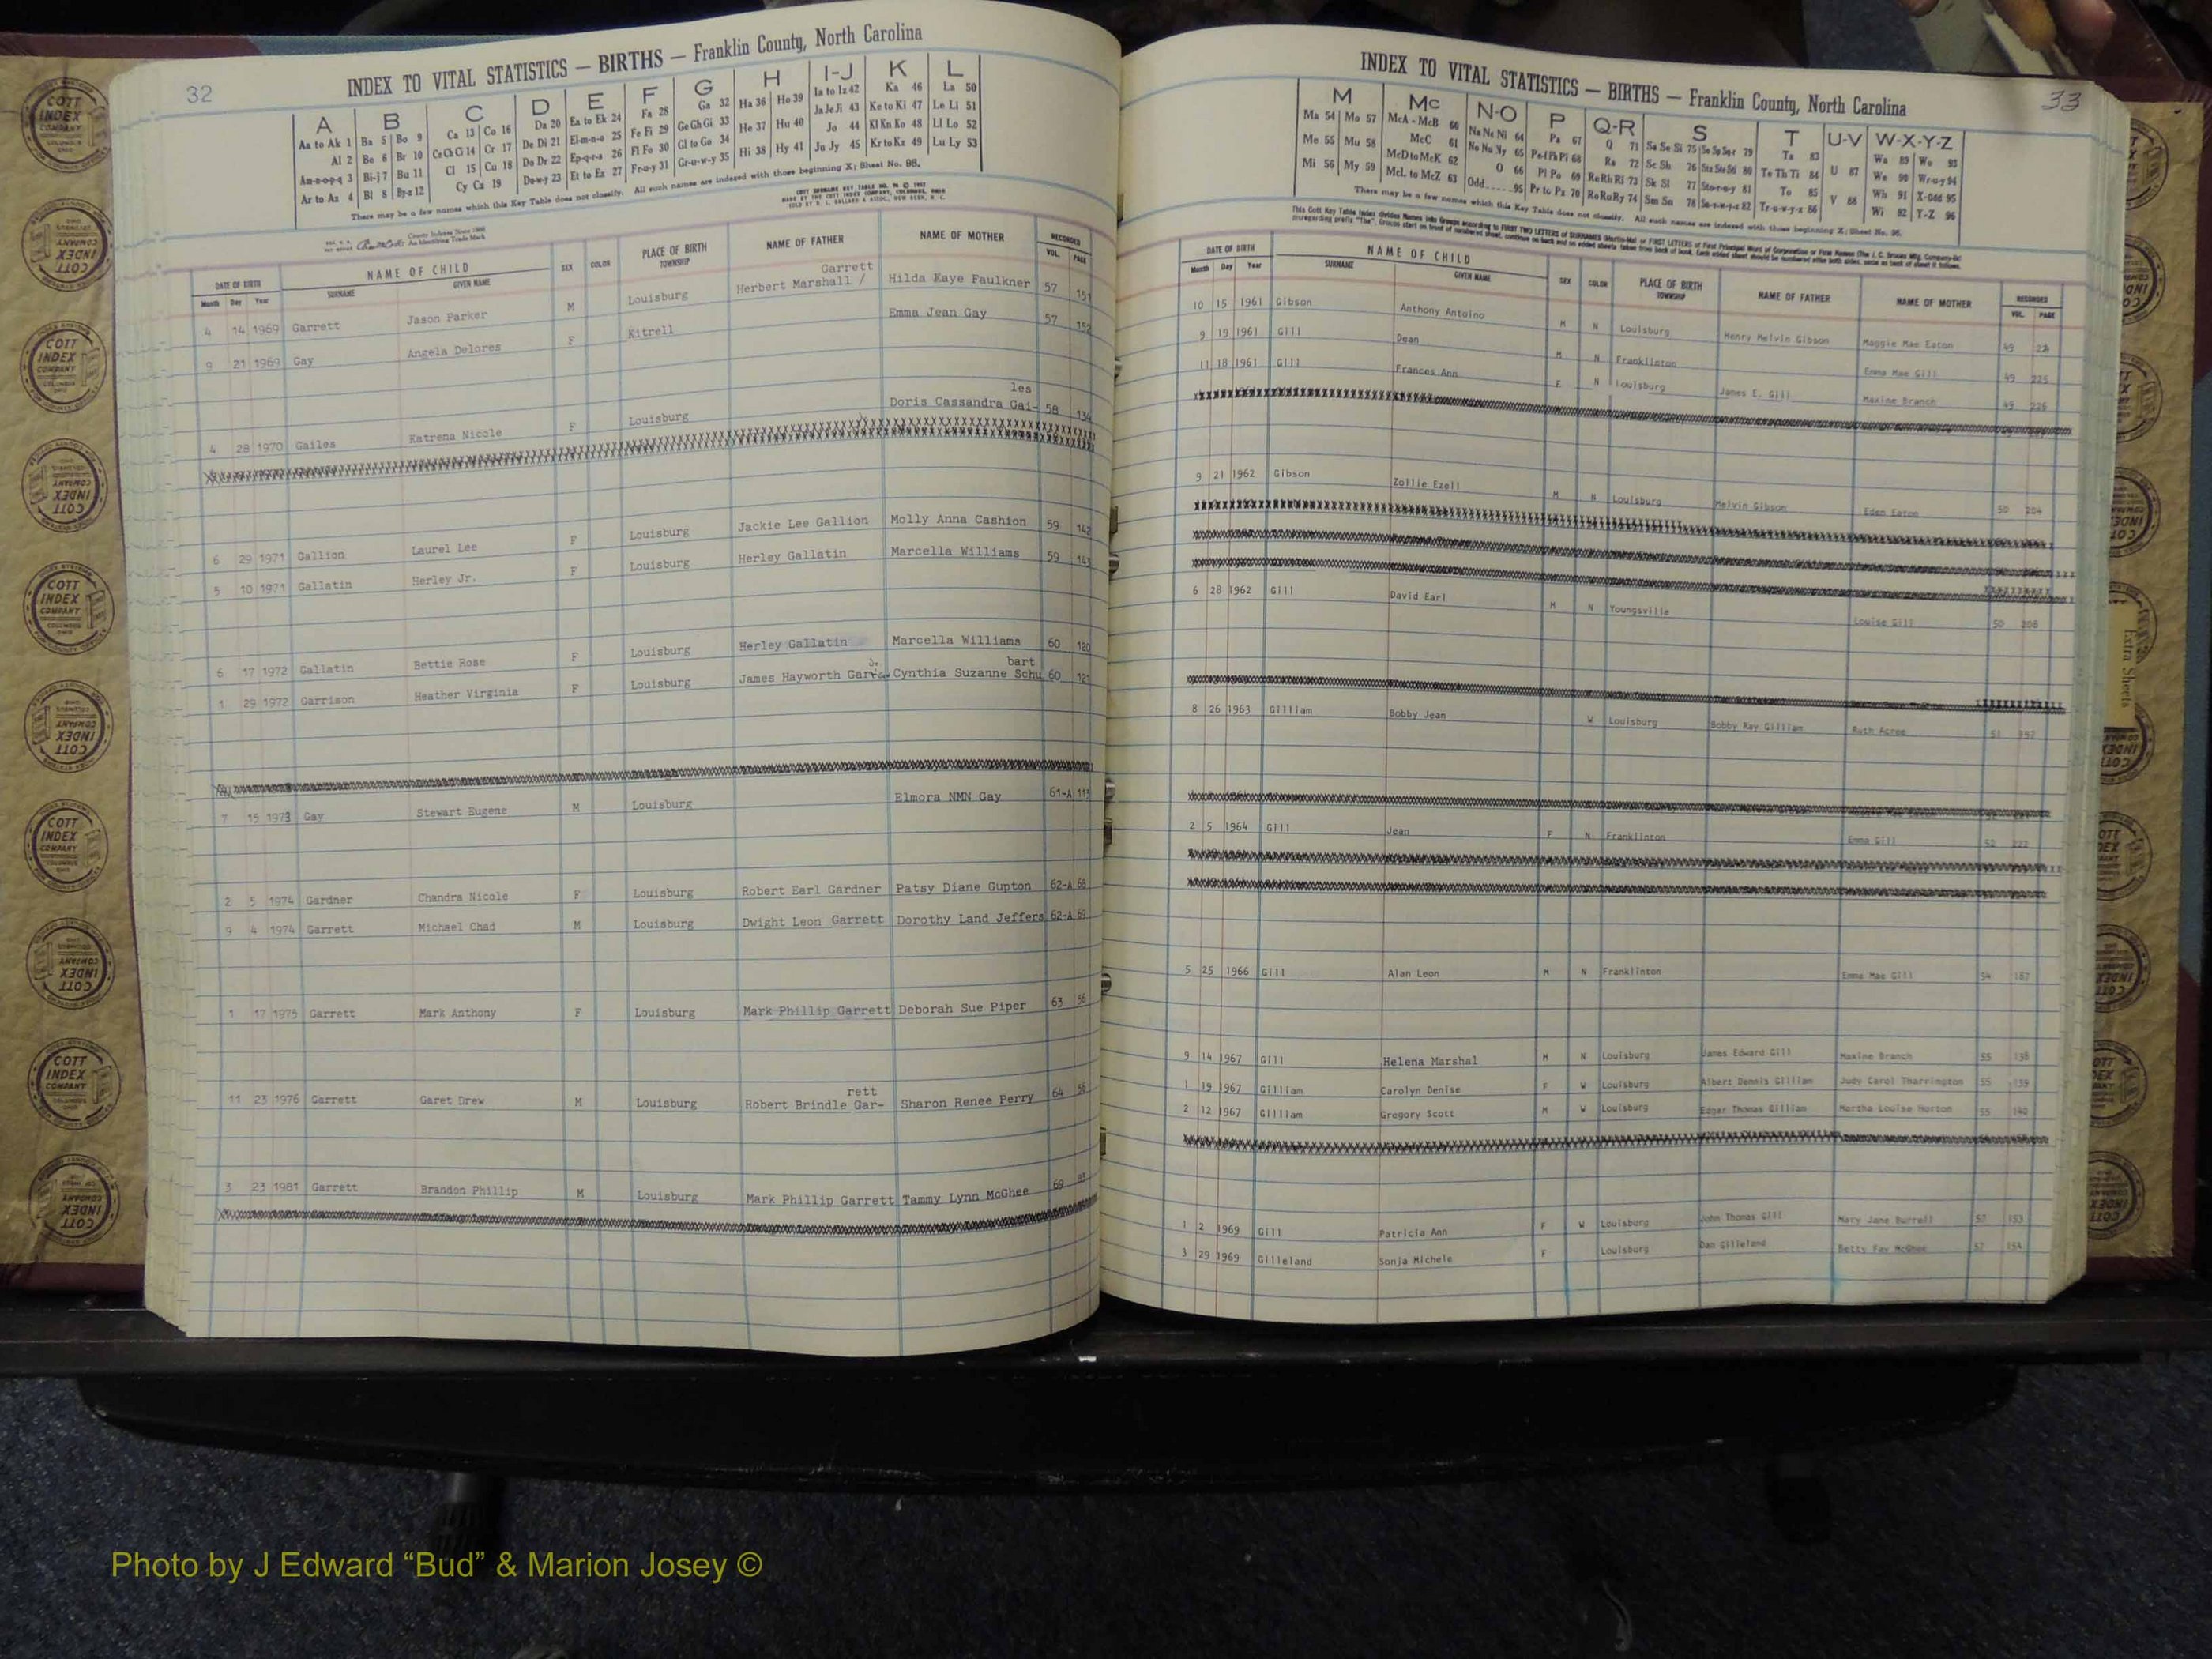 32
INDEX TO VITAL STATISTICS — BIRTHS — Franklin County, North Carolina
A B C D E F G H I-J K L
Aa to Ak 1 Ba 5 Bo 9 Ca 13 Co 16 Da 20 Ea to Ek 24 Fa 28 Ga 32 Ha 36 Ho 39 Ia to Iz 42 Ka 46 La 50
Al 2 Be 6 Br 10 Ce Ch Ci 14 Cr 17 De Di 21 El-m-n-o 25 Fe Fi 29 Ge Gh Gi 33 He 37 Hu 40 Ja Je Ji 43 Ke to Ki 47 Le Li 51
Am-n-o-p-q 3 Bi-j 7 Bu 11 Cl 15 Cu 18 Do Dr 22 Ep-q-r-s 26 Fl Fo 30 Gl to Go 34 Hi 38 Hy 41 Jo 44 Kl Kn Ko 48 Ll Lo 52
Ar to Az 4 Bl 8 By-z 12 Cy Cz 19 Du-w-y 23 Et to Ez 27 Fr-u-y 31 Gr-u-w-y 35 Ju Jy 45 Kr to Kz 49 Lu Ly 53
There may be a few names which this Key Table does not classify. All such names are indexed with those beginning X; Sheet No. 96.
DATE OF BIRTH NAME OF CHILD SEX COLOR PLACE OF BIRTH TOWNSHIP NAME OF FATHER NAME OF MOTHER RECORDED
Month Day Year SURNAME GIVEN NAME VOL. PAGE
4 14 1969 Garrett Jason Parker M Louisburg Herbert Marshall / Garrett Hilda Kaye Faulkner 57 151
9 21 1969 Gay Angela Delores F Kitrell Emma Jean Gay 57 152
4 28 1970 Gailes Katrena Nicole F Louisburg Doris Cassandra Gai- les 58 134
6 29 1971 Gallion Laurel Lee F Louisburg Jackie Lee Gallion Molly Anna Cashion 59 142
5 10 1971 Gallatin Herley Jr. F Louisburg Herley Gallatin Marcella Williams 59 143
6 17 1972 Gallatin Bettie Rose F Louisburg Herley Gallatin Marcella Williams 60 120
1 29 1972 Garrison Heather Virginia F Louisburg James Hayworth Cynthia Suzanne Schu bart 60 121
7 15 1973 Gay Stewart Eugene M Louisburg Elmora NMN Gay 61-A 113
2 5 1974 Gardner Chandra Nicole F Louisburg Robert Earl Gardner Patsy Diane Gupton 62-A 68
9 4 1974 Garrett Michael Chad M Louisburg Dwight Leon Garrett Dorothy Land Jeffers 62-A 69
1 17 1975 Garrett Mark Anthony F Louisburg Mark Phillip Garrett Deborah Sue Piper 63 56
11 23 1976 Garrett Garet Drew M Louisburg Robert Brindle Gar- rett Sharon Renee Perry 64 56
3 23 1981 Garrett Brandon Phillip M Louisburg Mark Phillip Garrett Tammy Lynn McGhee 69
33
INDEX TO VITAL STATISTICS — BIRTHS — Franklin County, North Carolina
M Mc N-O P Q-R S T U-V W-X-Y-Z
Ma 54 Mo 57 McA - McB 60 Na Ne Ni 64 Pa 67 Q 71 Sa Se Si 75 So Sp Sq-r 79 Ta 83 U 87 Wa 89 Wo 93
Me 55 Mu 58 McC 61 No Nu Ny 65 Pe-f Ph Pi 68 Ra 72 Sc Sh 76 Sta Ste Sti 80 Te Th Ti 84 V 88 We 90 Wr-u-y 94
Mi 56 My 59 McD to McK 62 O 66 Pl Po 69 Re Rh Ri 73 Sk Sl 77 Sto-r-u-y 81 To 85 Wh 91 X-Odd 95
McL to McZ 63 Odd 95 Pr to Ps 70 Ro Ru Ry 74 Sm Sn 78 Su-v-w-y-z 82 Tr-u-w-y-z 86 Wi 92 Y-Z 96
There may be a few names which this Key Table does not classify. All such names are indexed with those beginning X; Sheet No. 96.
DATE OF BIRTH NAME OF CHILD SEX COLOR PLACE OF BIRTH TOWNSHIP NAME OF FATHER NAME OF MOTHER RECORDED
Month Day Year SURNAME GIVEN NAME VOL. PAGE
10 15 1961 Gibson Anthony Antoino M N Louisburg Henry Melvin Gibson Maggie Mae Eaton 49
9 19 1961 Gill Dean M N Franklinton Emma Mae Gill 49 225
11 18 1961 Gill Frances Ann F N Louisburg James E. Gill Maxine Branch 49 226
9 21 1962 Gibson Zollie Ezell M N Louisburg Melvin Gibson Eden Eaton 50 204
6 28 1962 Gill David Earl M N Youngsville Louise Gill 50 208
8 26 1963 Gilliam Bobby Jean W Louisburg Bobby Ray Gilliam Ruth Acree 51 157
2 5 1964 Gill Jean F N Franklinton Emma Gill 52 222
5 25 1966 Gill Alan Leon M N Franklinton Emma Mae Gill 54 167
9 14 1967 Gill Helena Marshal M N Louisburg James Edward Gill Maxine Branch 55 138
1 19 1967 Gilliam Carolyn Denise F W Louisburg Albert Dennis Gilliam Judy Carol Tharrington 55 139
2 12 1967 Gilliam Gregory Scott M W Louisburg Edgar Thomas Gilliam Martha Louise Horton 55 140
1 2 1969 Gill Patricia Ann F W Louisburg John Thomas Gill Mary Jane Burrell 57 153
3 29 1969 Gilleland Sonja Michele F Louisburg Dan Gilleland Betty Fay McGhee 57 154
Extra Sheets
COTT INDEX COMPANY
Photo by J Edward “Bud” & Marion Josey ©